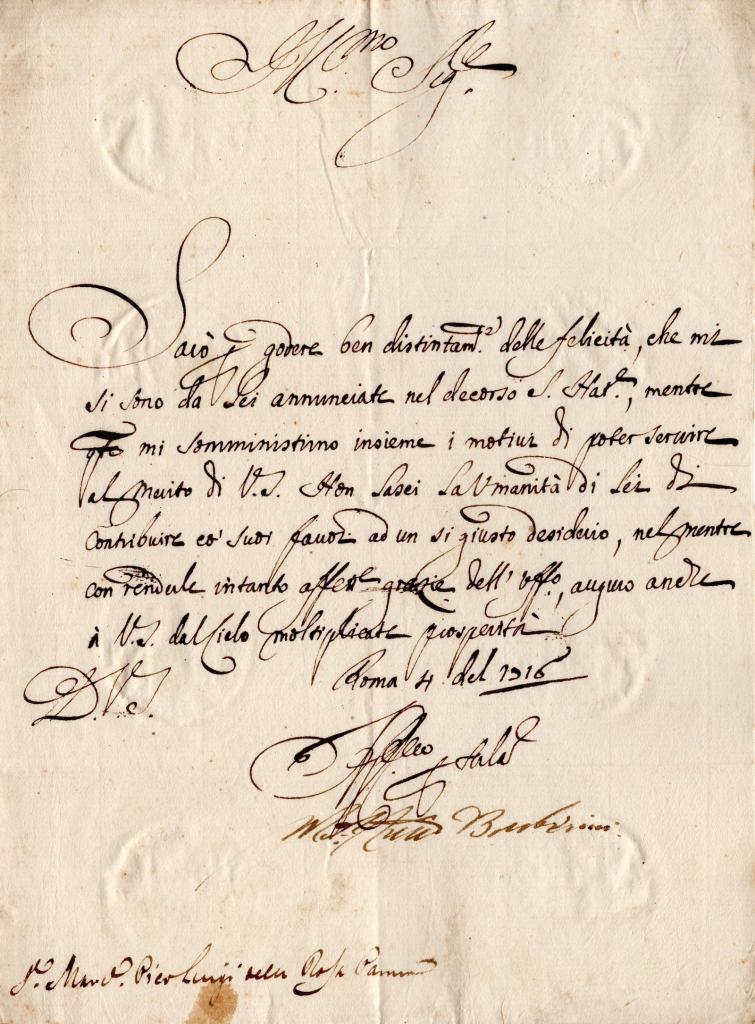 Ill.mo Sig.re
Sarò p godere ben distintam.e delle felicità, che mi
si sono da Lei annunciate nel decorso S. Nat.e, mentre
qte mi somministrano insieme i motivi di poter servire
al merito di V.S. Non lasci la Vmanità di Lei di
contribuire co' suoi favori ad un si giusto desiderio, nel mentre
con renderle intanto affett.e grazie dell' vffo, auguro anche
à V.S. dal Cielo moltiplicate prosperità
Roma 4 del 1716
D.V.S.
Aff.
Barberini
S.r Marc.e Pier Luigi della Rosa Parma